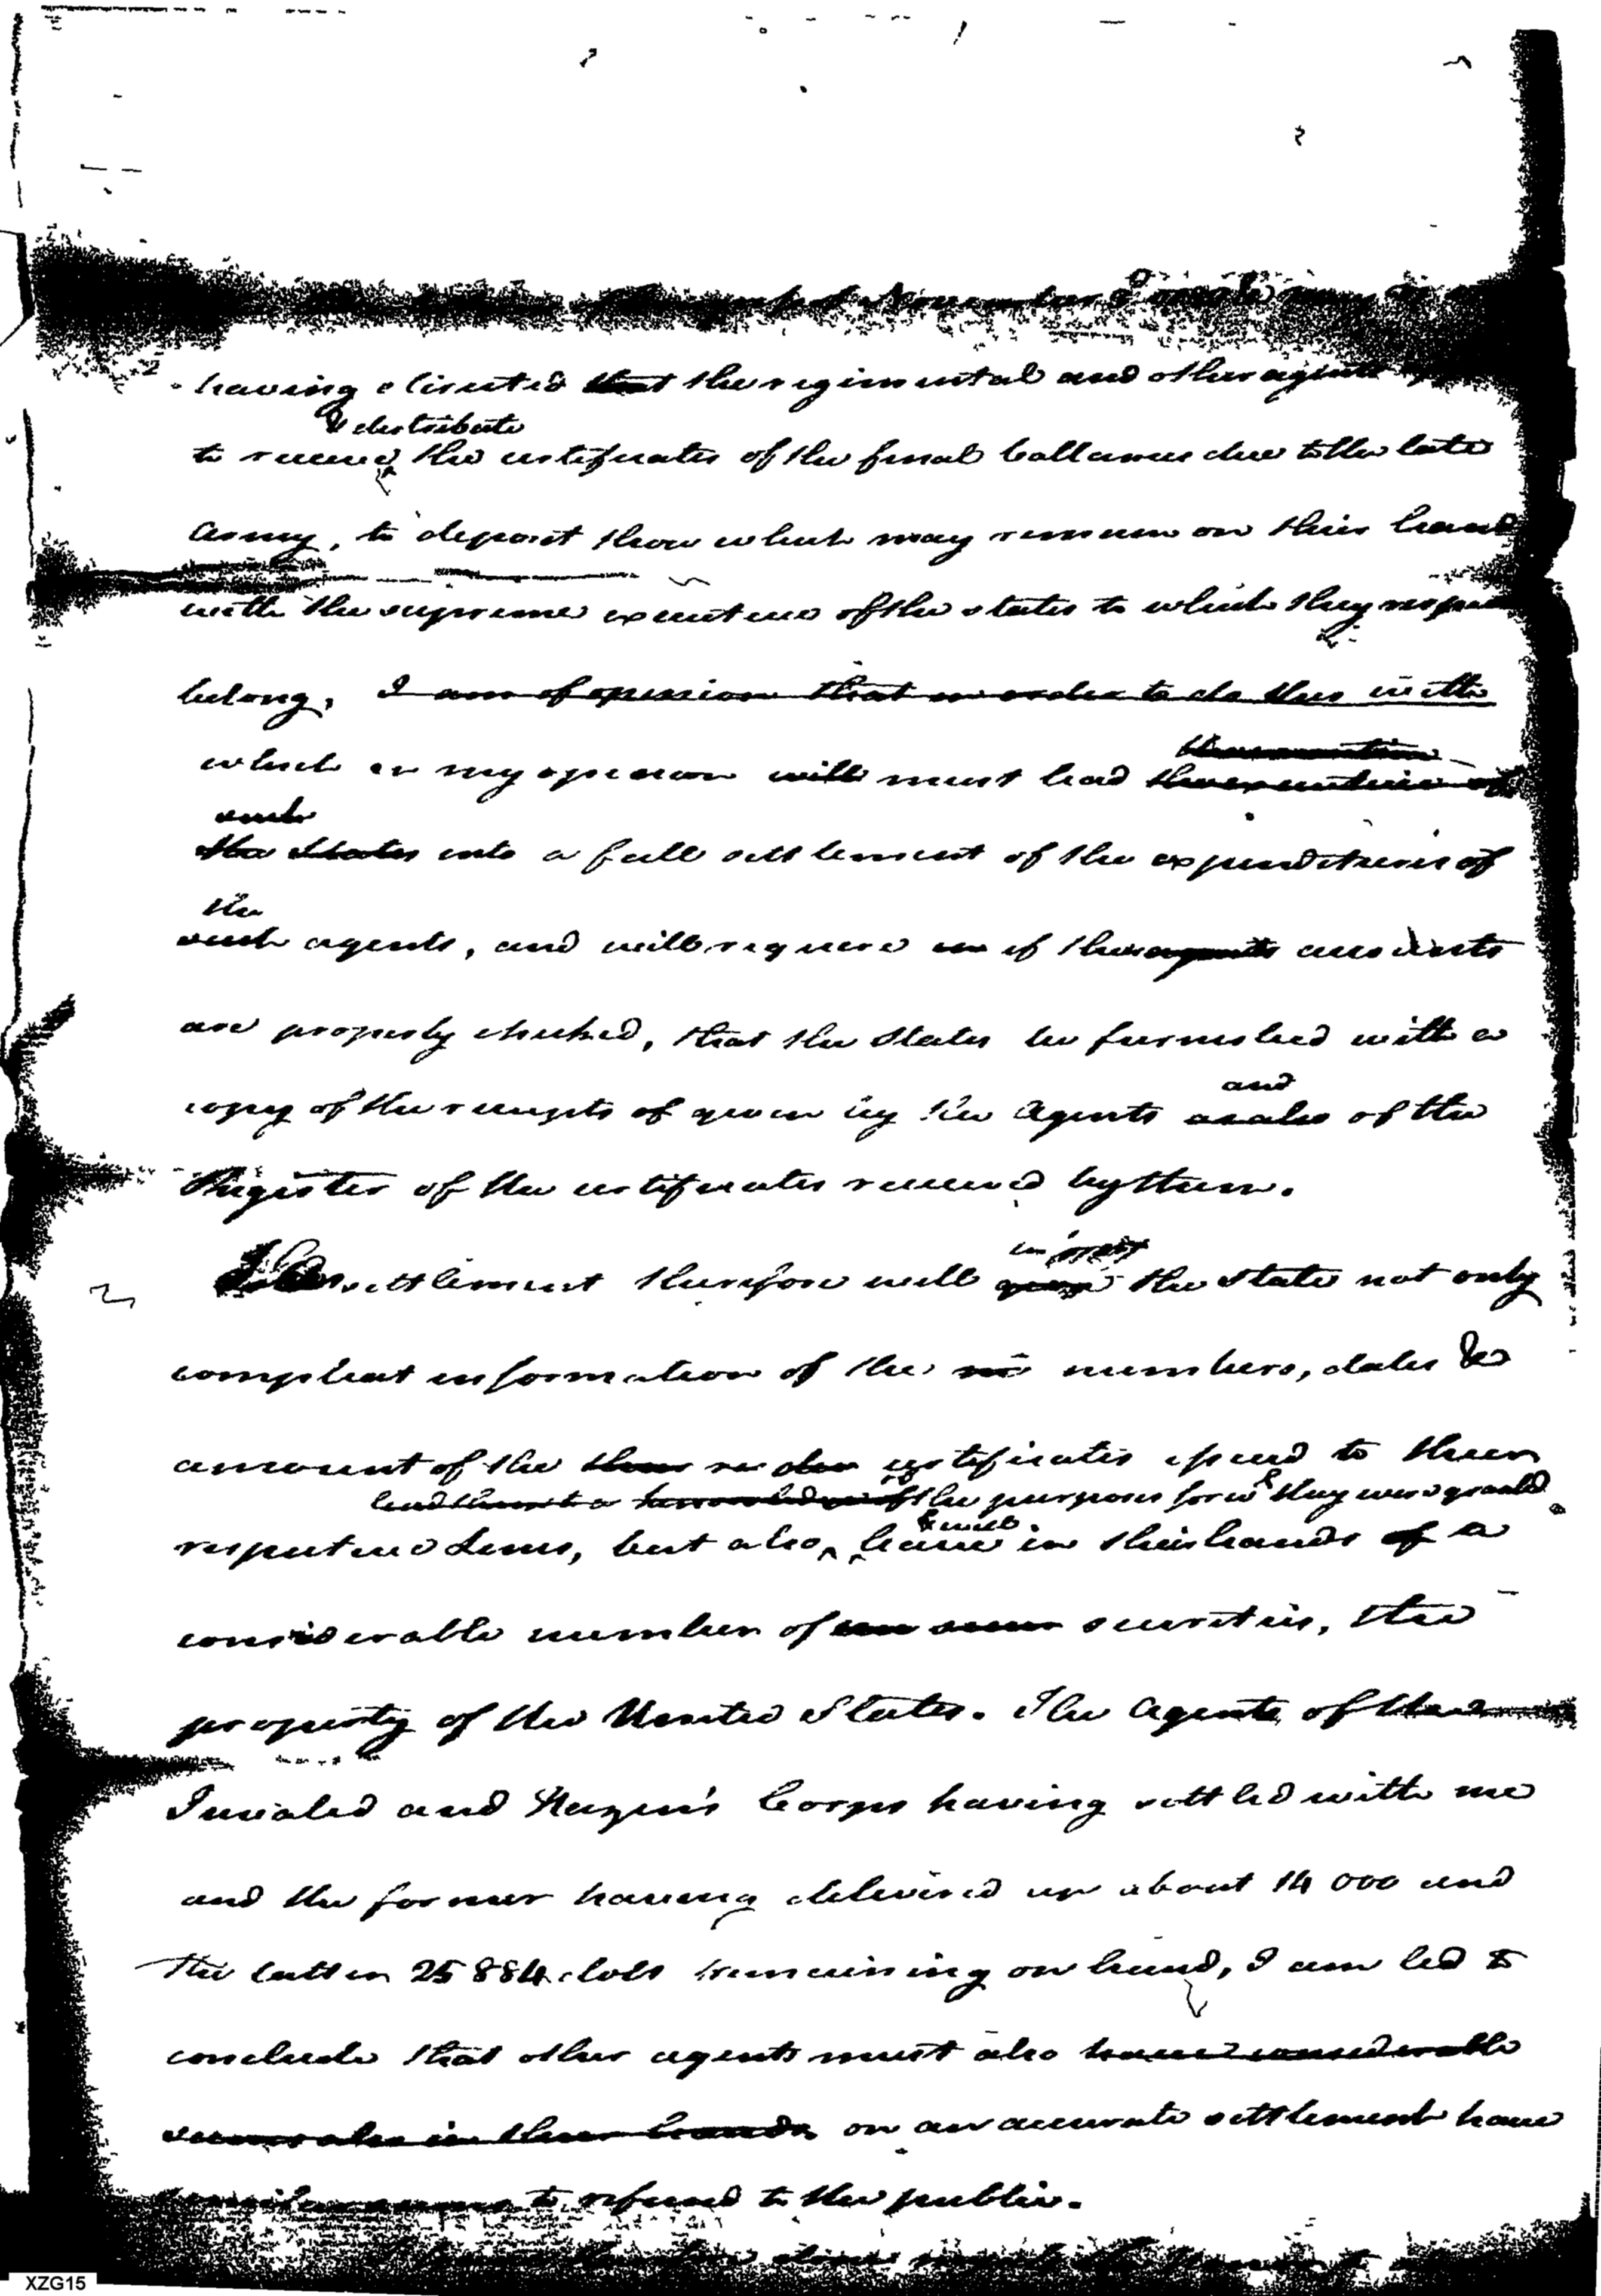 of November
having directed that the regimental and other agents
& distribute
to receive the certificates of the final ballances due to the late
Army, to deposit those which may remain on their hand
with the supreme executive of the states to which they respec
belong, I am of opinion that in order to do this with
which in my opinion will must lead the executive of
such
the States into a full settlement of the expenditures of
the
such agents, and will require in if the agents accounts
are properly checked, that the States be furnished with a
copy of the receipts of given by the Agents
and
as also of the
Register of the certificates received by them.
settlement therefore will the state not only
compleat information of the numbers, dates &
amount of the certificates issued to their
lead them to a knowledge of the purposes for wh they were granted
respective Lines, but also
& will
leave in their hands of a
considerable number of securities, the
property of the United States. The Agents of the
Invalid and Hazen's Corps having settled with me
and the former having delivered up about 14 000 and
the latter 25 884 dols remaining on hand, I am led to
conclude that other agents must also have considerable
sums also in their hands on an accurate settlement have
similar sums to refund to the public.
XZG15